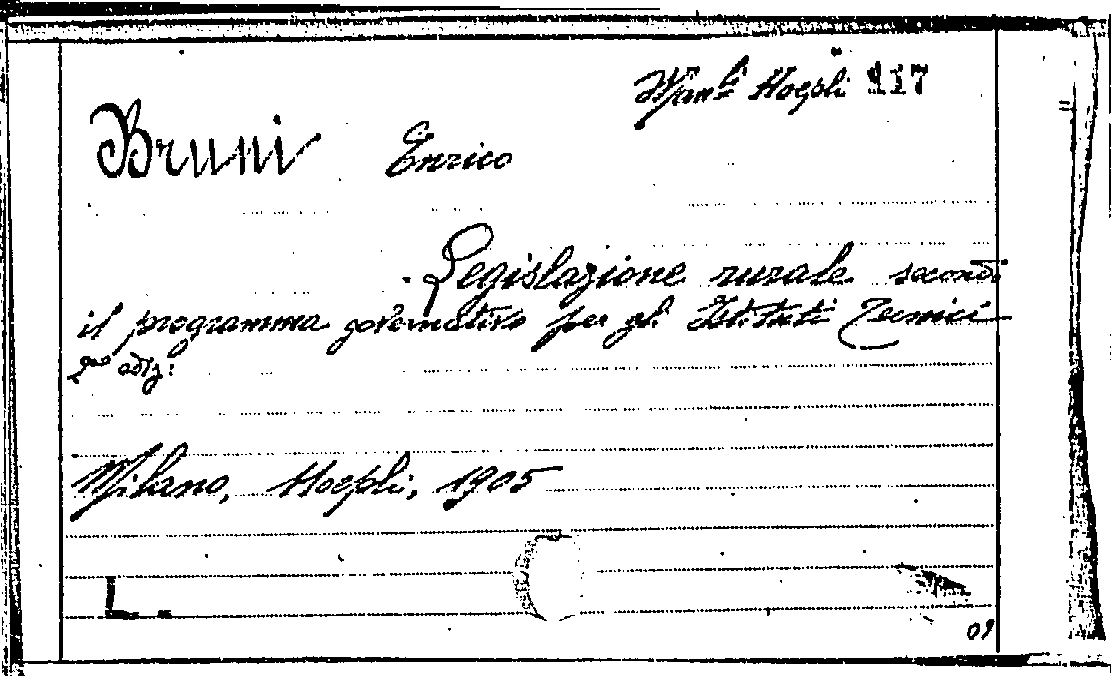 Man.li Hoepli 117
Bruni Enrico
Legislazione rurale secondo
il programma governativo per gli Istituti Tecnici
2da ediz:
Milano, Hoepli, 1905
L.
09